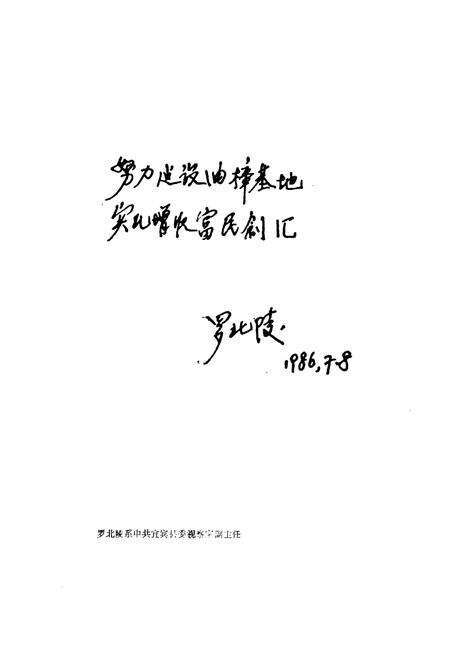 努力建设油樟基地
实现增收富民创汇
罗北陵
1986,7.8
罗北陵系中共宜宾县委视察室副主任